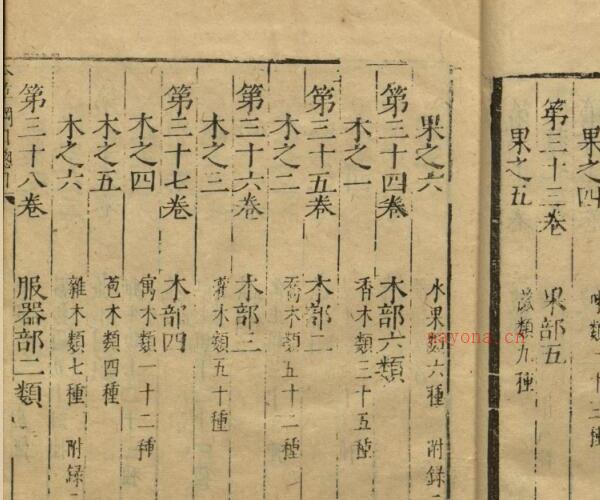 果之四
第三十三卷 果部五
果之五 蓏類九種
果之六 水果類六種 附録
第三十四卷 木部六類
木之一 香木類三十五種
第三十五卷 木部二
木之二 喬木類五十二種
第三十六卷 木部三
木之三 灌木類五十種
第三十七卷 木部四
木之四 寓木類一十二種
木之五 苞木類四種
木之六 雜木類七種 附録
第三十八卷 服器部二類
nayona.cn